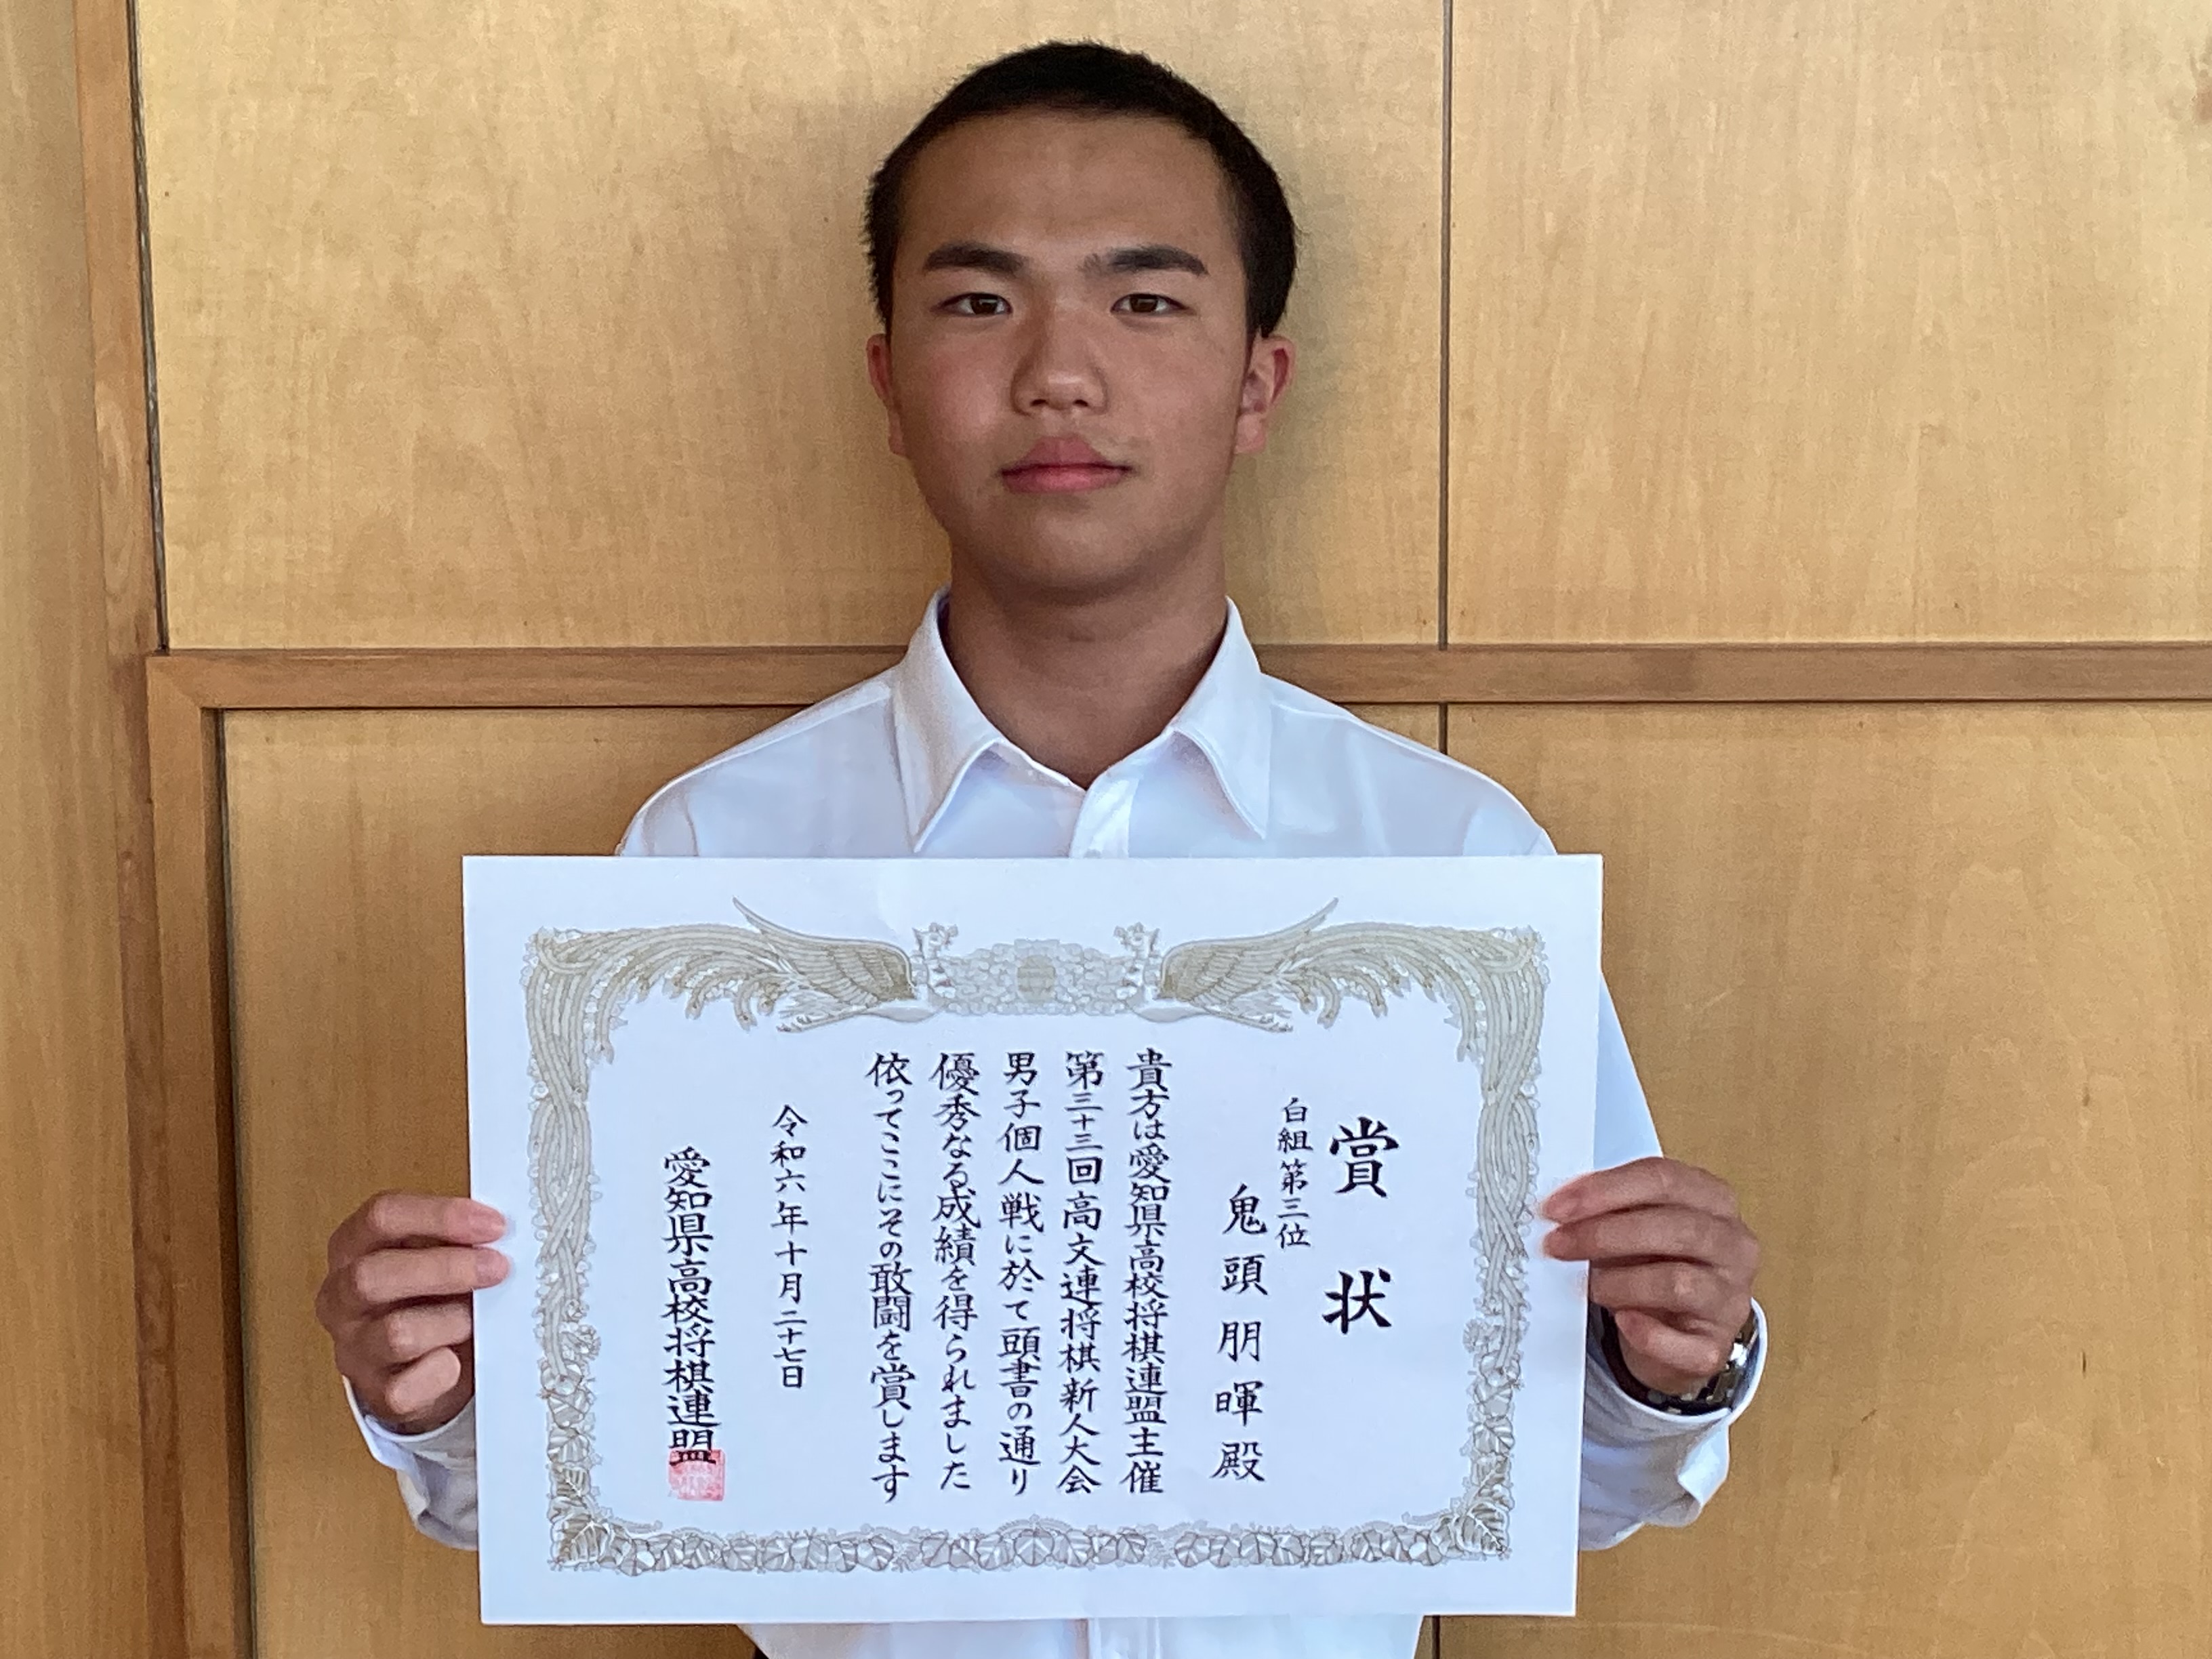 賞状
白組第三位
鬼頭朋暉殿
貴方は愛知県高校将棋連盟主催
第三十三回高文連将棋新人大会
男子個人戦に於て頭書の通り
優秀なる成績を得られました
依ってここにその敢闘を賞します
令和六年十月二十七日
愛知県高校将棋連盟